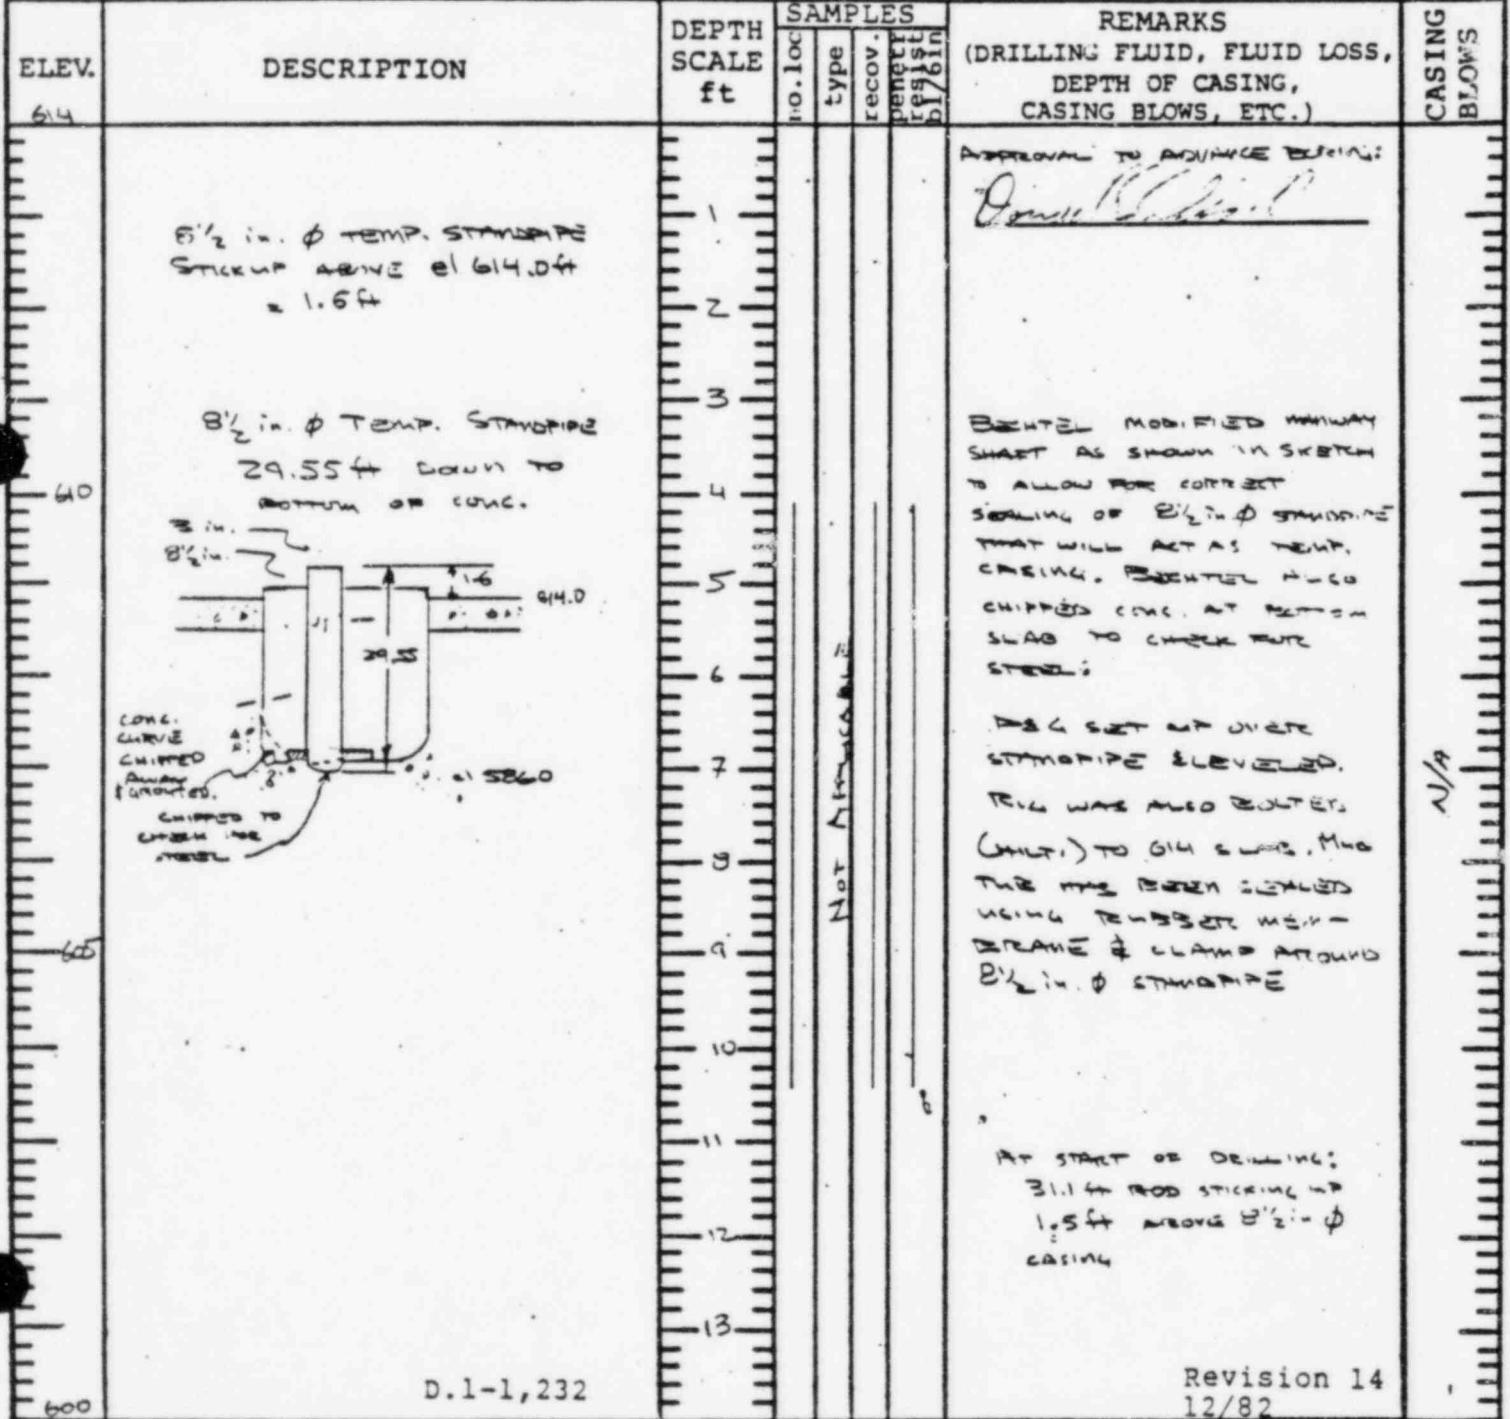 ELEV.
614
DESCRIPTION
DEPTH
SCALE
ft
SAMPLES
no.loc
type
recov.
penetr
resist
bl/6in
REMARKS
(DRILLING FLUID, FLUID LOSS,
DEPTH OF CASING,
CASING BLOWS, ETC.)
CASING
BLOWS
610
605
600
8 1/2 in. Ø TEMP. STANDPIPE
STICKUP ABOVE el 614.0ft
= 1.6 ft
8 1/2 in. Ø TEMP. STANDPIPE
29.55 ft DOWN TO
BOTTOM OF CONC.
3 in.
8 1/2 in.
1.6
614.0
29.55
CONC.
CURVE
CHIPPED
AWAY
& GROUTED.
el 586.0
CHIPPED TO
CHECK FOR
STEEL
D.1-1,232
1
2
3
4
5
6
7
8
9
10
11
12
13
NOT APPLICABLE
APPROVAL TO ADVANCE BORING:
BECHTEL MODIFIED MANWAY
SHAFT AS SHOWN IN SKETCH
TO ALLOW FOR CORRECT
SEALING OF 8 1/2 in Ø STANDPIPE
THAT WILL ACT AS TEMP.
CASING. BECHTEL ALSO
CHIPPED CONC. AT BOTTOM
SLAB TO CHECK FOR
STEEL:
SET UP OVER
STANDPIPE & LEVELED.
RIG WAS ALSO BOLTED
TO 614 SLAB. MUD
TUB HAS BEEN SEALED
USING RUBBER MEM-
BRANE & CLAMP AROUND
8 1/2 in. Ø STANDPIPE
AT START OF DRILLING:
31.1 ft ROD STICKING UP
1.5 ft ABOVE 8 1/2 in Ø
CASING
Revision 14
12/82
N/A